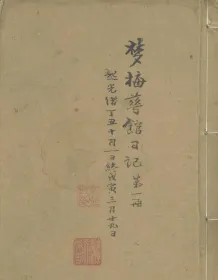 梦梅华馆日记 第一册
起光绪丁丑十月一日讫戊寅三月廿九日